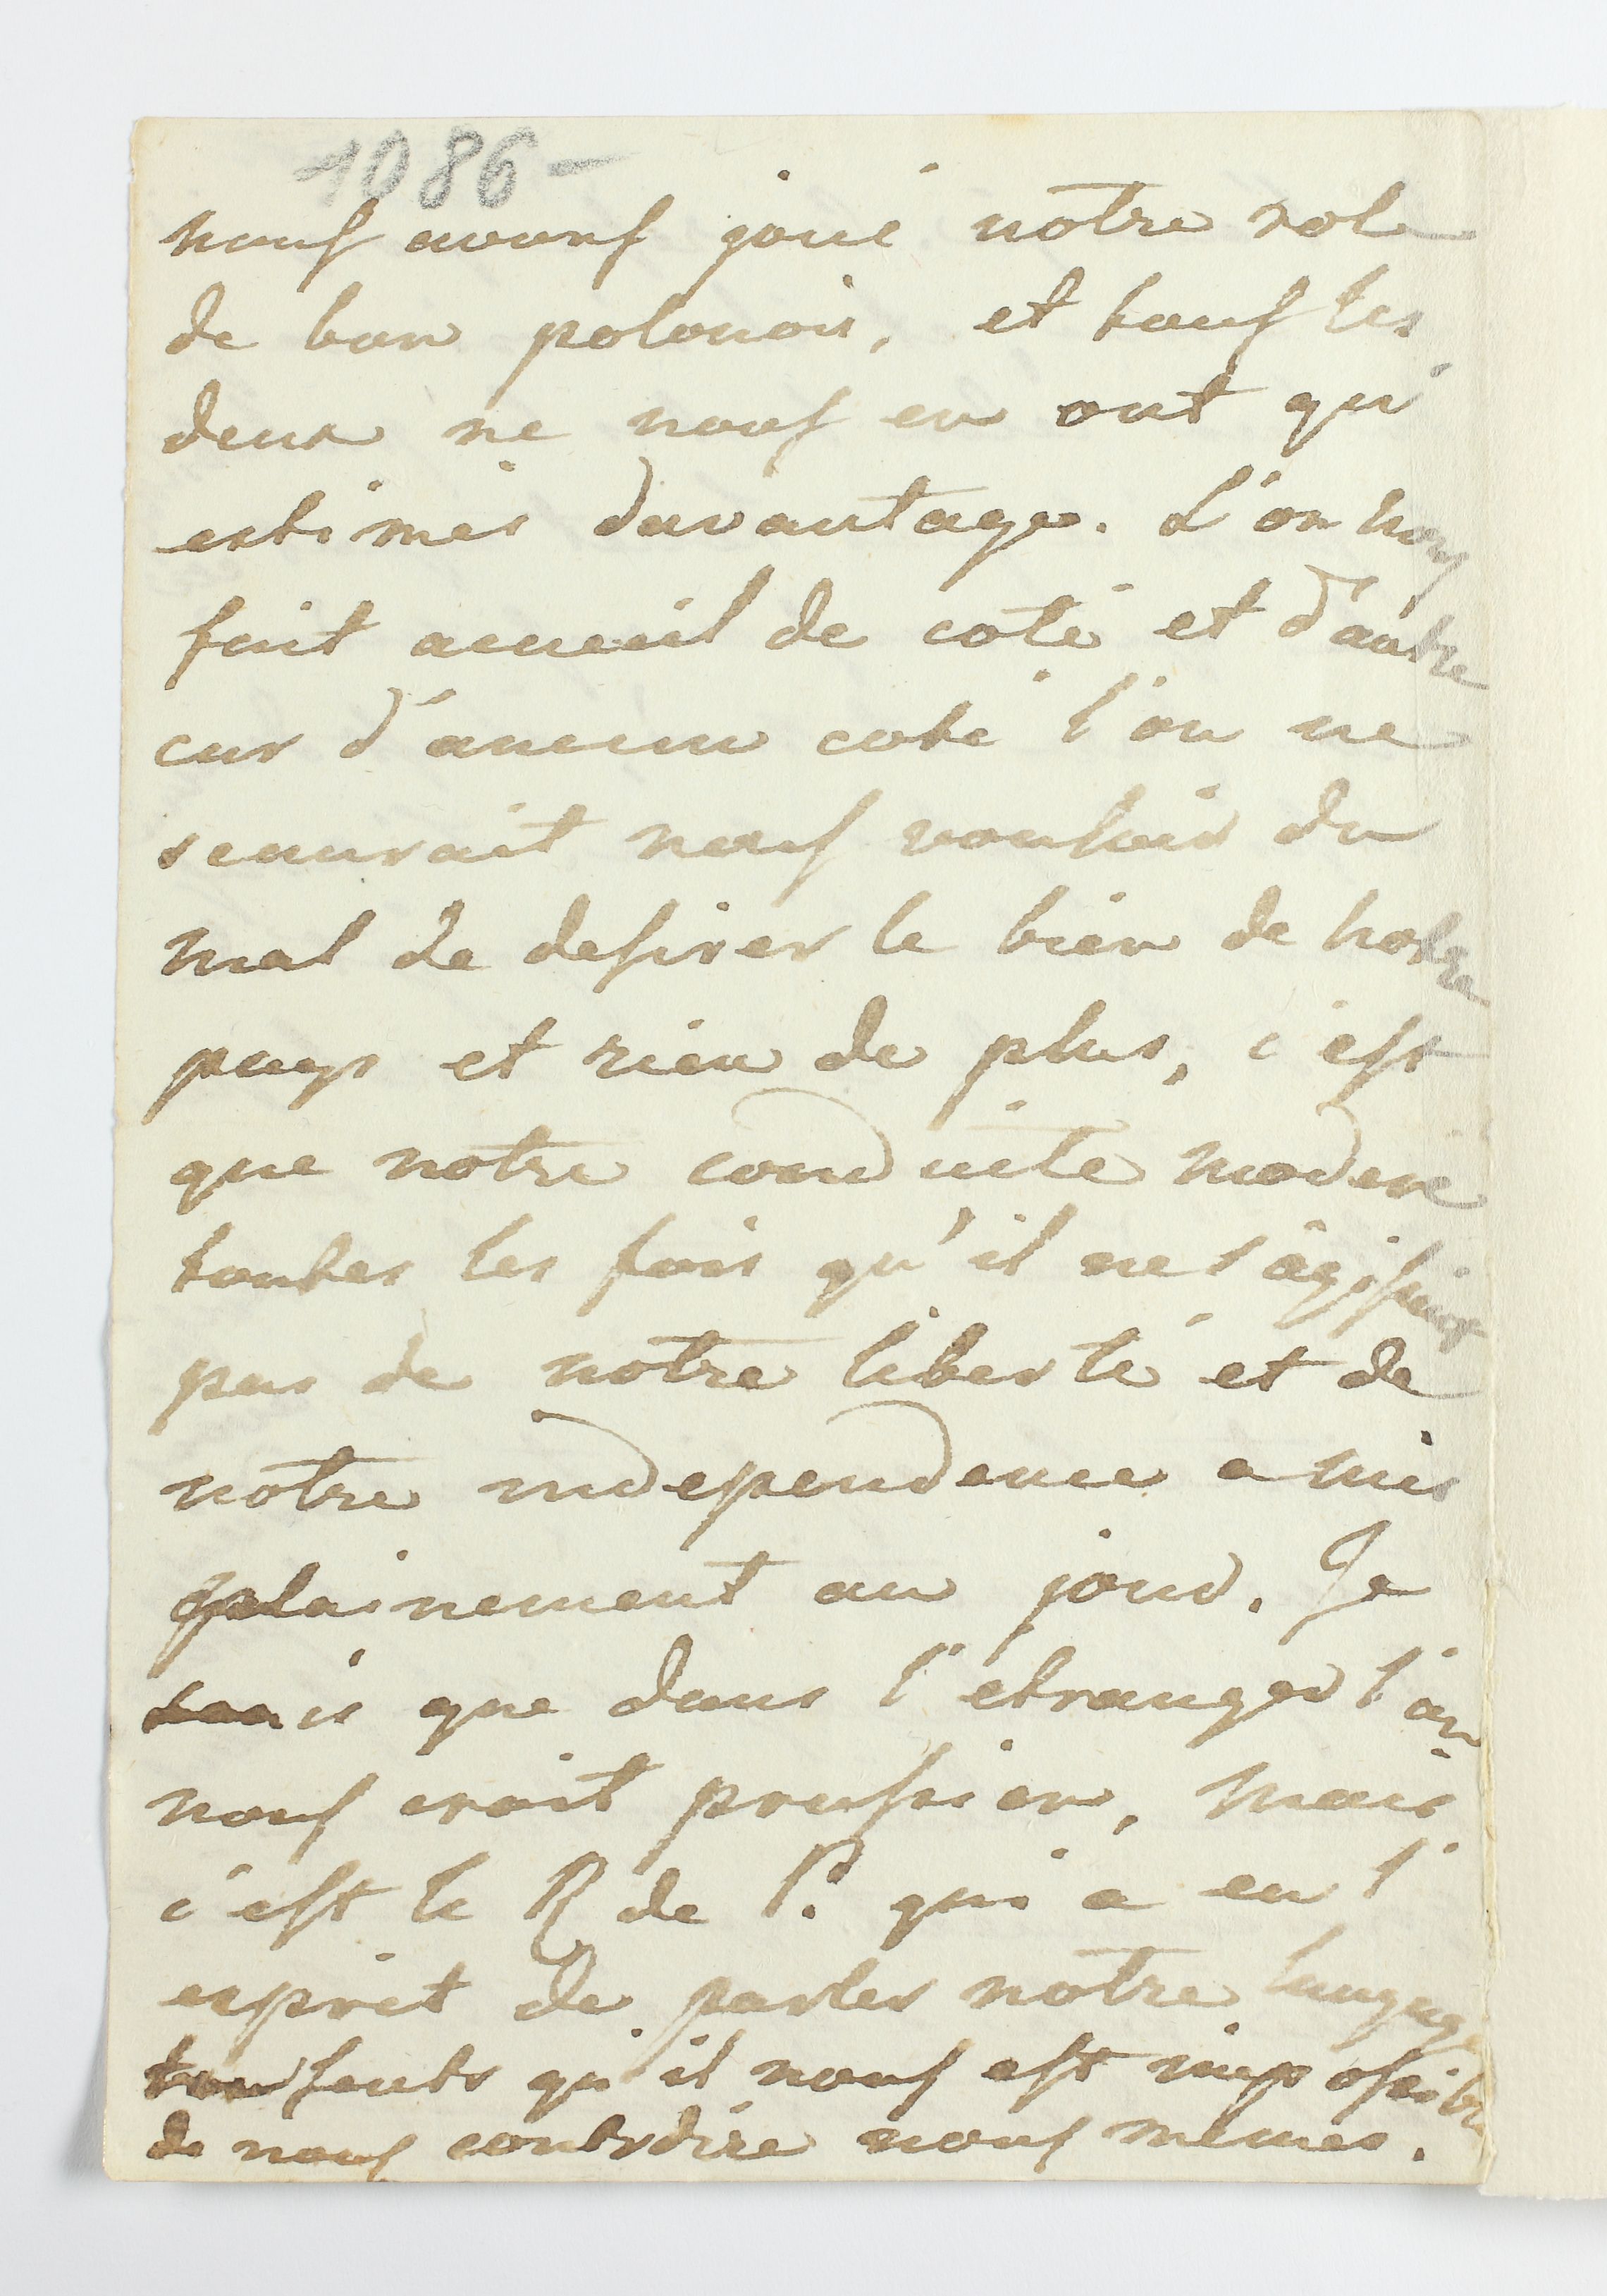 1086-
nous avons joué notre role
de bon polonois, et tous les
deux ne nous en ont qu'
estimés davantage. L'on nous
fait acueuil de coté et d'autre
car d'aucun coté l'on ne
scaurait nous vouloir du
mal de desirer le bien de notre
pays et rien de plus, c'est
que notre conduite moderé
toutes les fois qu'il ne s'agissait
pas de notre liberté et de
notre independence a mis
plainement au jour. Je
sais que dans l'etranger l'on
nous croit prussien, mais
c'est le R de P. qui a eu l'
esprit de parler notre langage
qu'il nous est impossible
de nous contrdire nous mêmes.